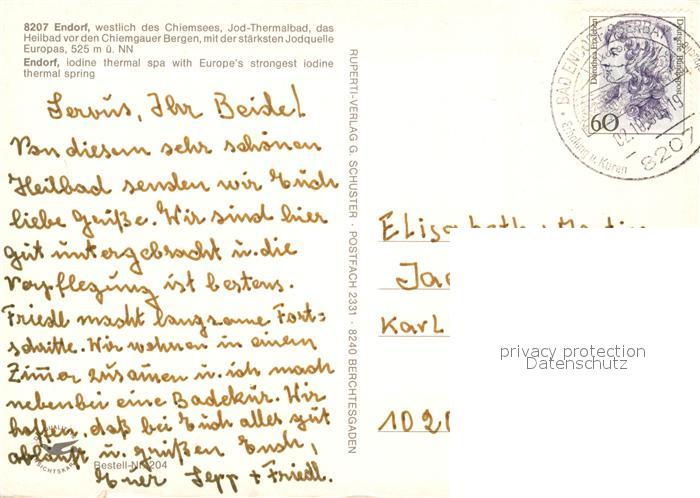 8207 Endorf, westlich des Chiemsees, Jod-Thermalbad, das
Heilbad vor den Chiemgauer Bergen, mit der stärksten Jodquelle
Europas, 525 m ü. NN
Endorf, iodine thermal spa with Europe's strongest iodine
thermal spring
Servus, Ihr Beide!
Von diesem sehr schönen
Heilbad senden wir Euch
liebe Grüße. Wir sind hier
gut untergebracht u. die
Verpflegung ist bestens.
Friedl macht langsame Fort=
schritte. Wir wohnen in einem
Zimmer zusammen u. ich mach
nebenbei eine Badekur. Wir
hoffen, daß bei Euch alles gut
abläuft u. grüßen Euch,
Euer Sepp + Friedl.
Bestell-Nr. 204
RUPERTI-VERLAG G. SCHUSTER · POSTFACH 2331 · 8240 BERCHTESGADEN
Dorothea Erxleben
Deutsche Bundespost
60
BAD ENDORF
Erholung u. Kuren
8207
Karl
privacy protection
Datenschutz